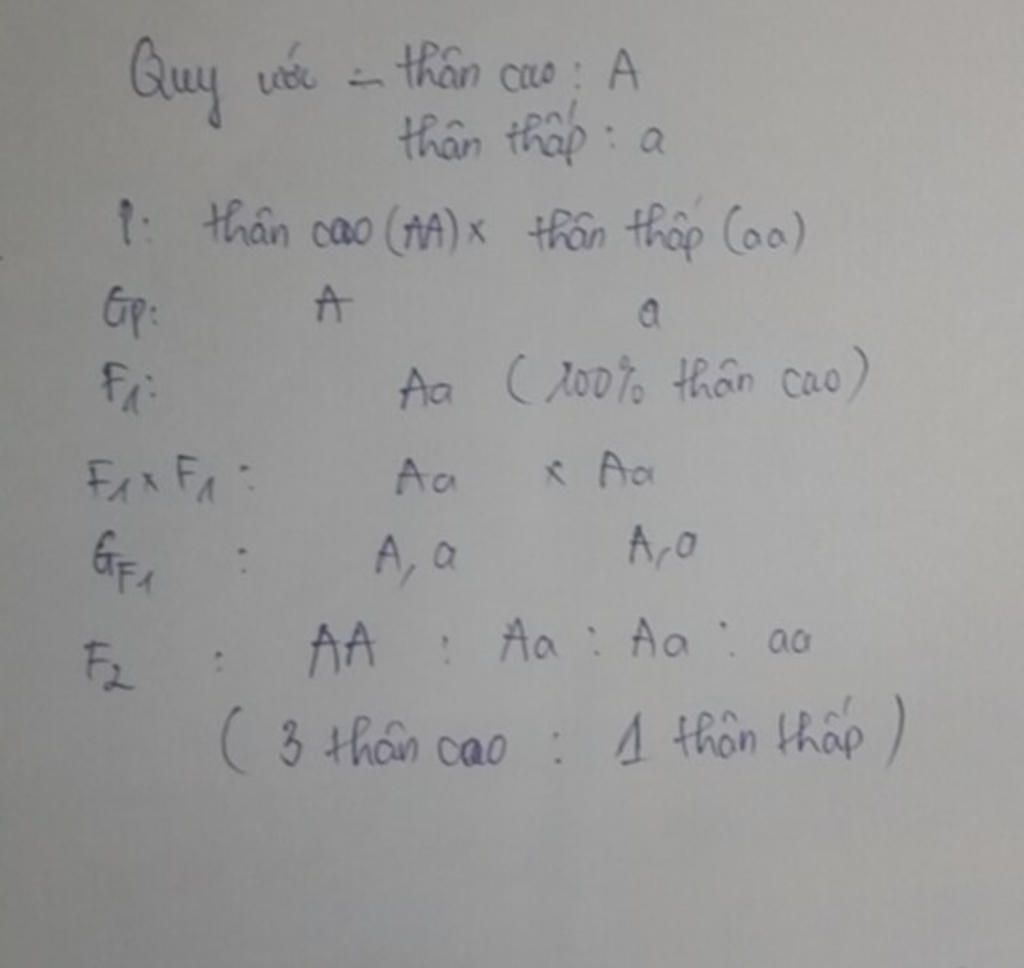 Quy ước - thân cao : A
thân thấp : a
P: thân cao (AA) x thân thấp (aa)
Gp: A a
F1: Aa (100% thân cao)
F1 x F1 : Aa x Aa
GF1 : A, a A, a
F2 : AA : Aa : Aa : aa
( 3 thân cao : 1 thân thấp )